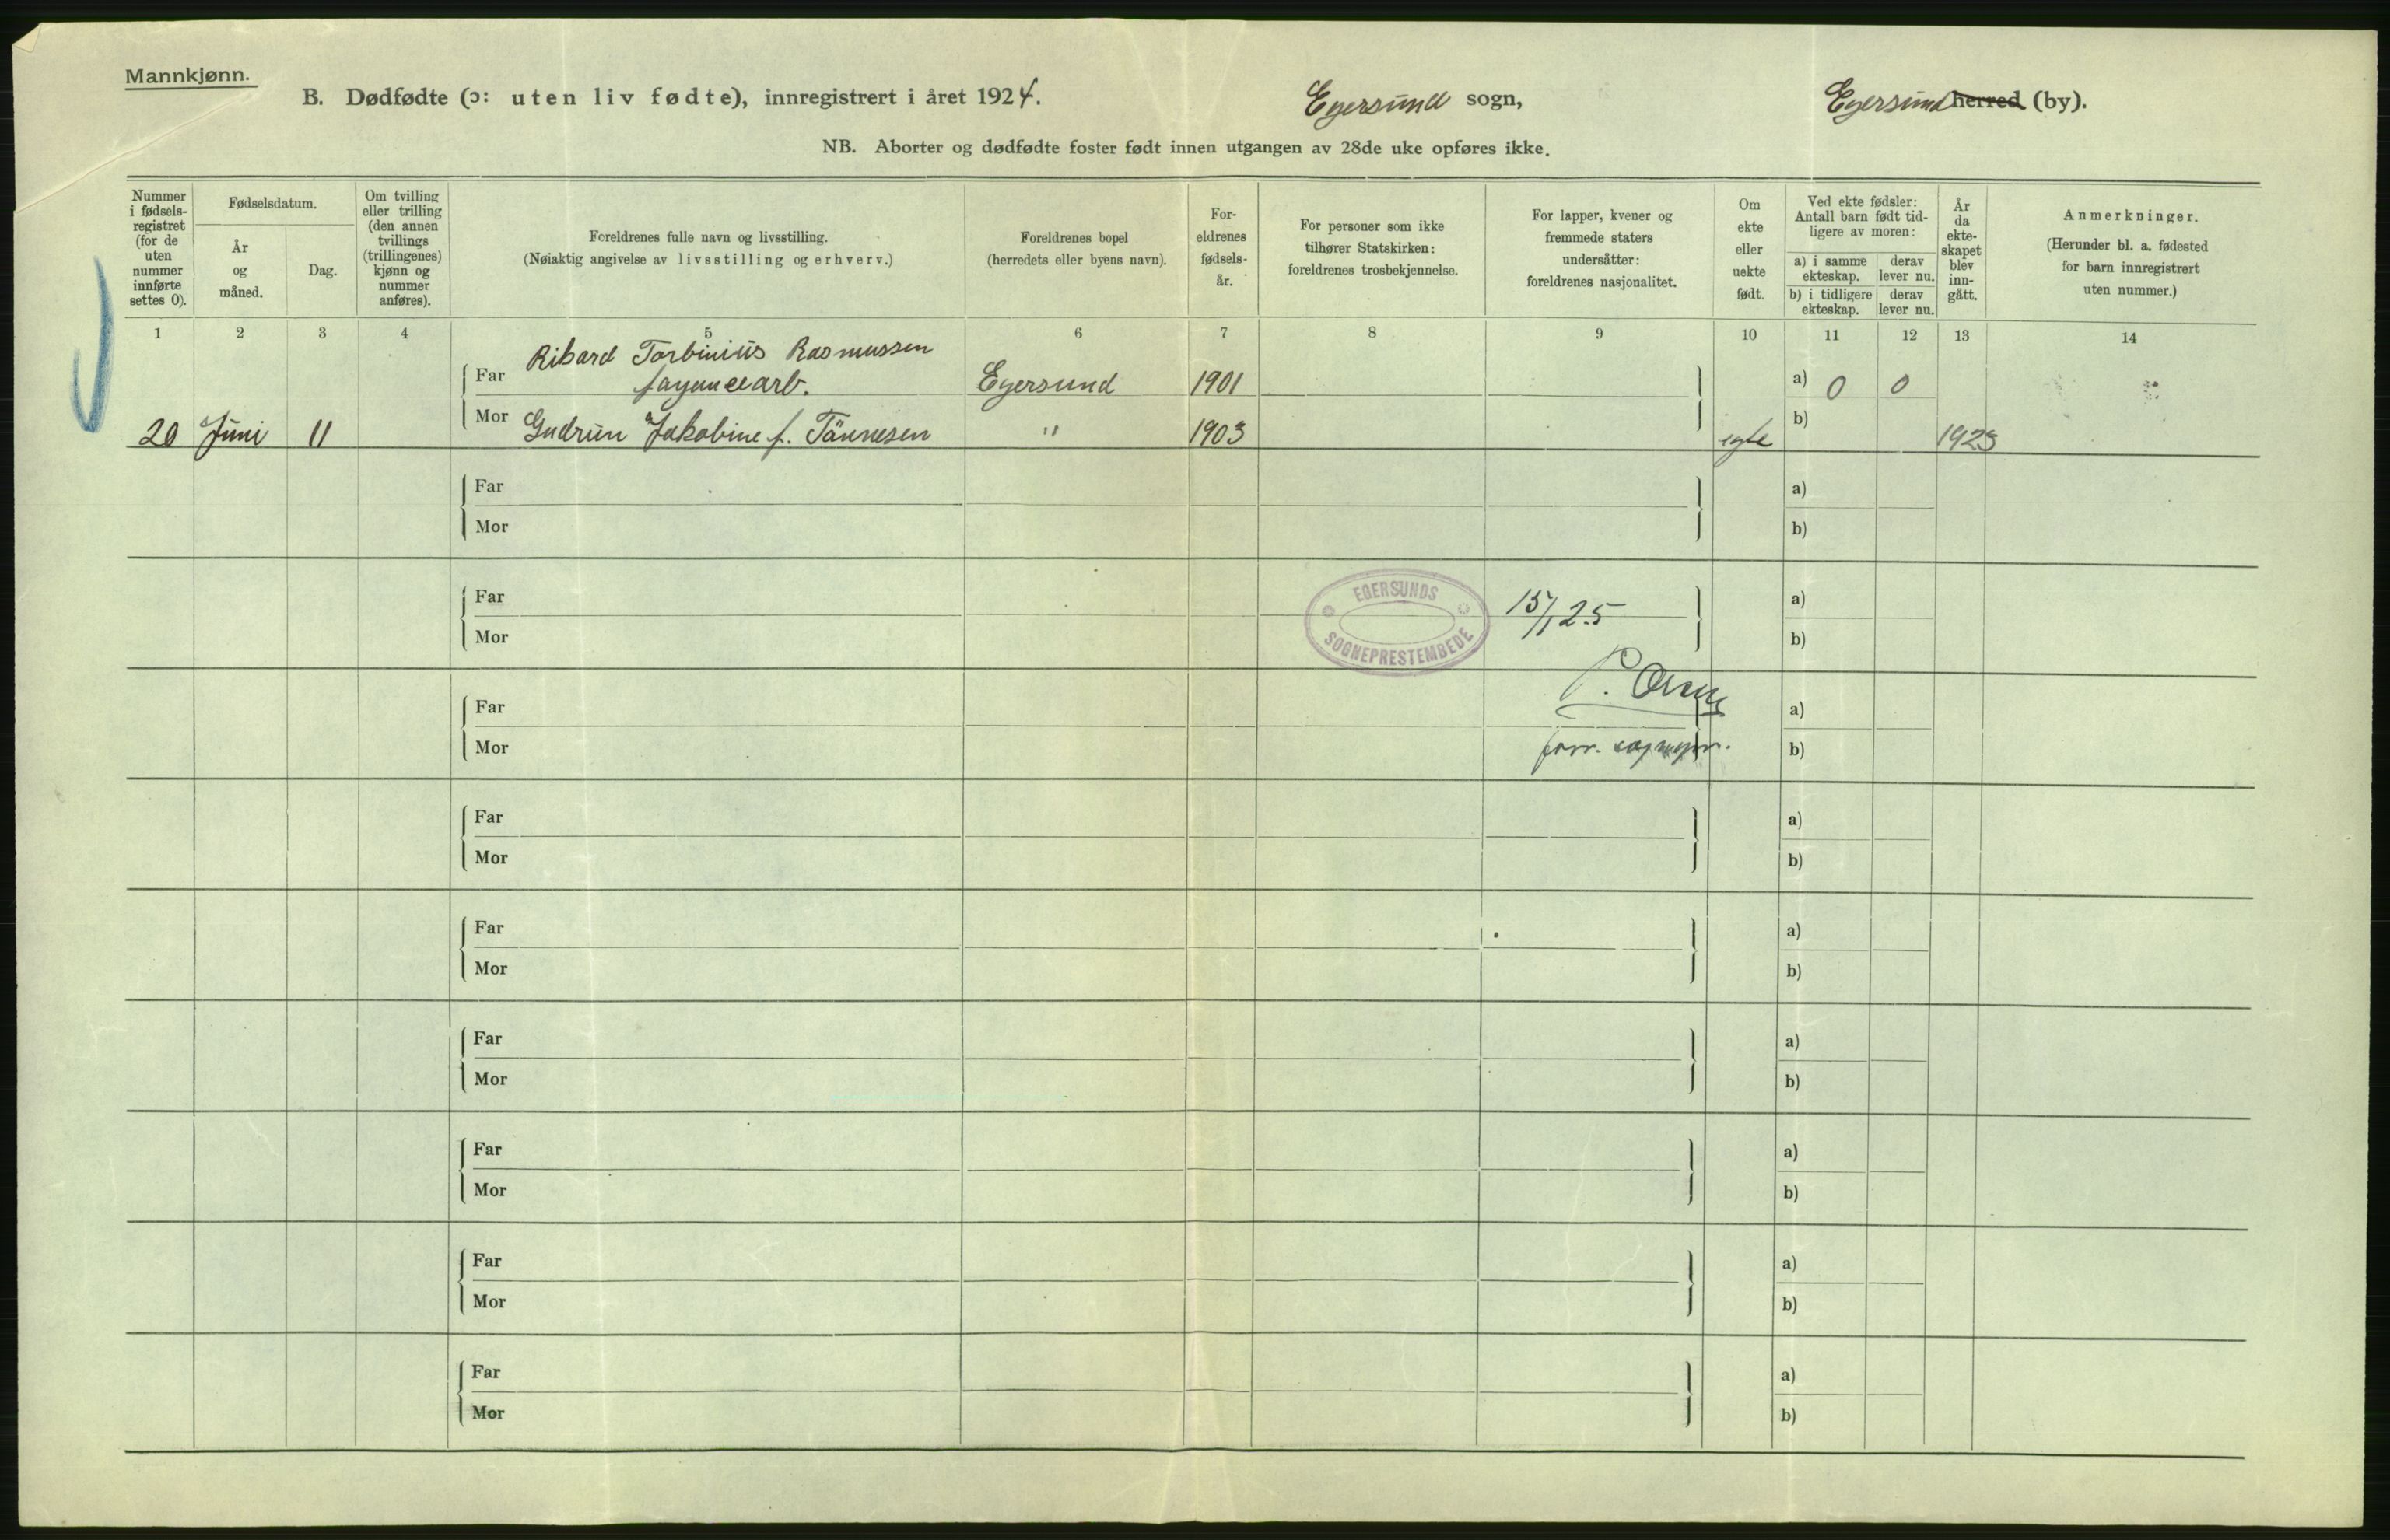 Mannkjønn.
B. Dødfødte (ɔ: uten liv fødte), innregistrert i året 1924. Egersund sogn, Egersund herred (by).
NB. Aborter og dødfødte foster født innen utgangen av 28de uke opføres ikke.
Nummer i fødsels-registret (for de uten nummer innførte settes 0).
Fødselsdatum.
År og måned.
Dag.
Om tvilling eller trilling (den annen tvillings (trillingenes) kjønn og nummer anføres).
Foreldrenes fulle navn og livsstilling.
(Nøiaktig angivelse av livsstilling og erhverv.)
Foreldrenes bopel
(herredets eller byens navn).
For-eldrenes fødsels-år.
For personer som ikke tilhører Statskirken: foreldrenes trosbekjennelse.
For lapper, kvener og fremmede staters undersåtter: foreldrenes nasjonalitet.
Om ekte eller uekte født.
Ved ekte fødsler: Antall barn født tid-ligere av moren:
a) i samme ekteskap.
derav lever nu.
b) i tidligere ekteskap.
derav lever nu.
År da ekte-skapet blev inn-gått.
Anmerkninger.
(Herunder bl. a. fødested for barn innregistrert uten nummer.)
1 2 3 4 5 6 7 8 9 10 11 12 13 14
Rikard Torbinius Rasmussen
Far fayancearb. Egersund 1901 a) 0 0
20 Juni 11 Mor Gudrun Jakobine f. Tønnesen " 1903 egte b) 1923
Far a)
Mor b)
EGERSUNDS SOGNEPRESTEMBEDE
Far 15/1 25 a)
Mor b)
P.
Far a)
Mor b)
Far a)
Mor b)
Far a)
Mor b)
Far a)
Mor b)
Far a)
Mor b)
Far a)
Mor b)
Far a)
Mor b)